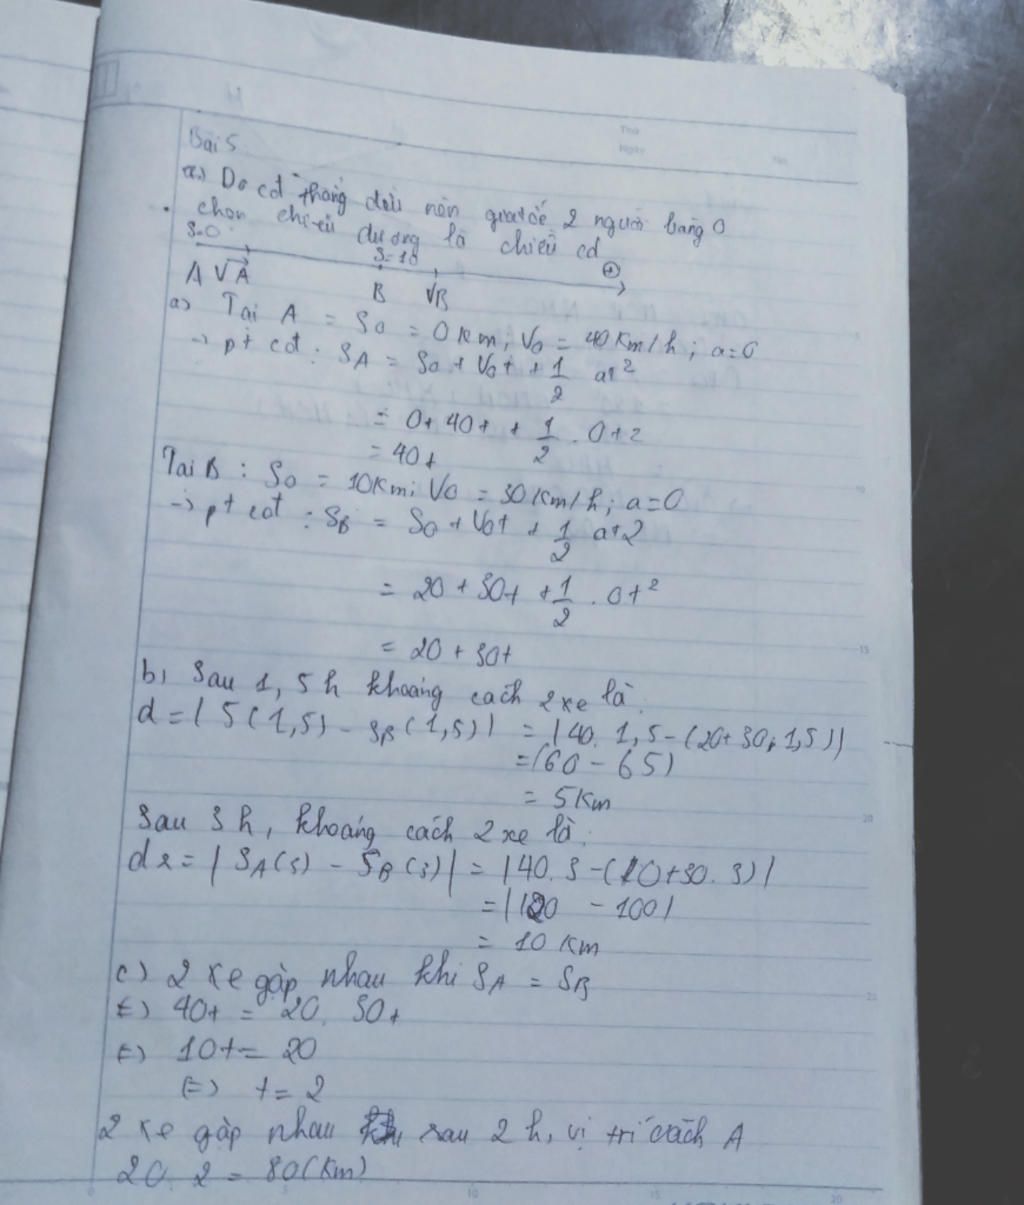 Bài 5
a) Do cđ thẳng đều nên gia tốc 2 người bằng 0
. chọn chiều dương là chiều cđ
S=0 S=10 +
A VA B VB
a) Tại A = S0 = 0 Km; V0 = 40 Km/h; a=0
-> pt cđ : SA = S0 + V0t + 1/2 at²
= 0+ 40t + 1/2 . 0t2
= 40t
Tại B : S0 = 10Km; V0 = 30 Km/h; a=0
-> pt cđ : SB = S0 + V0t + 1/2 at2
= 20 + 30t + 1/2 . 0t²
= 20 + 30t
b) Sau 1,5 h khoảng cách 2 xe là.
d = | S(1,5) - SB(1,5)| = |40. 1,5-(20+30.1,5)|
=(60 - 65)
= 5 Km
Sau 3 h, khoảng cách 2 xe là.
d2 = | SA(3) - SB(3)| = |40. 3 -(10+30. 3)|
=|120 - 100|
= 10 Km
c) 2 xe gặp nhau khi SA = SB
(=) 40t = 20. 30t
(=) 10t = 20
(=) t = 2
2 xe gặp nhau sau 2 h, vị trí cách A
20. 2 = 80(Km)